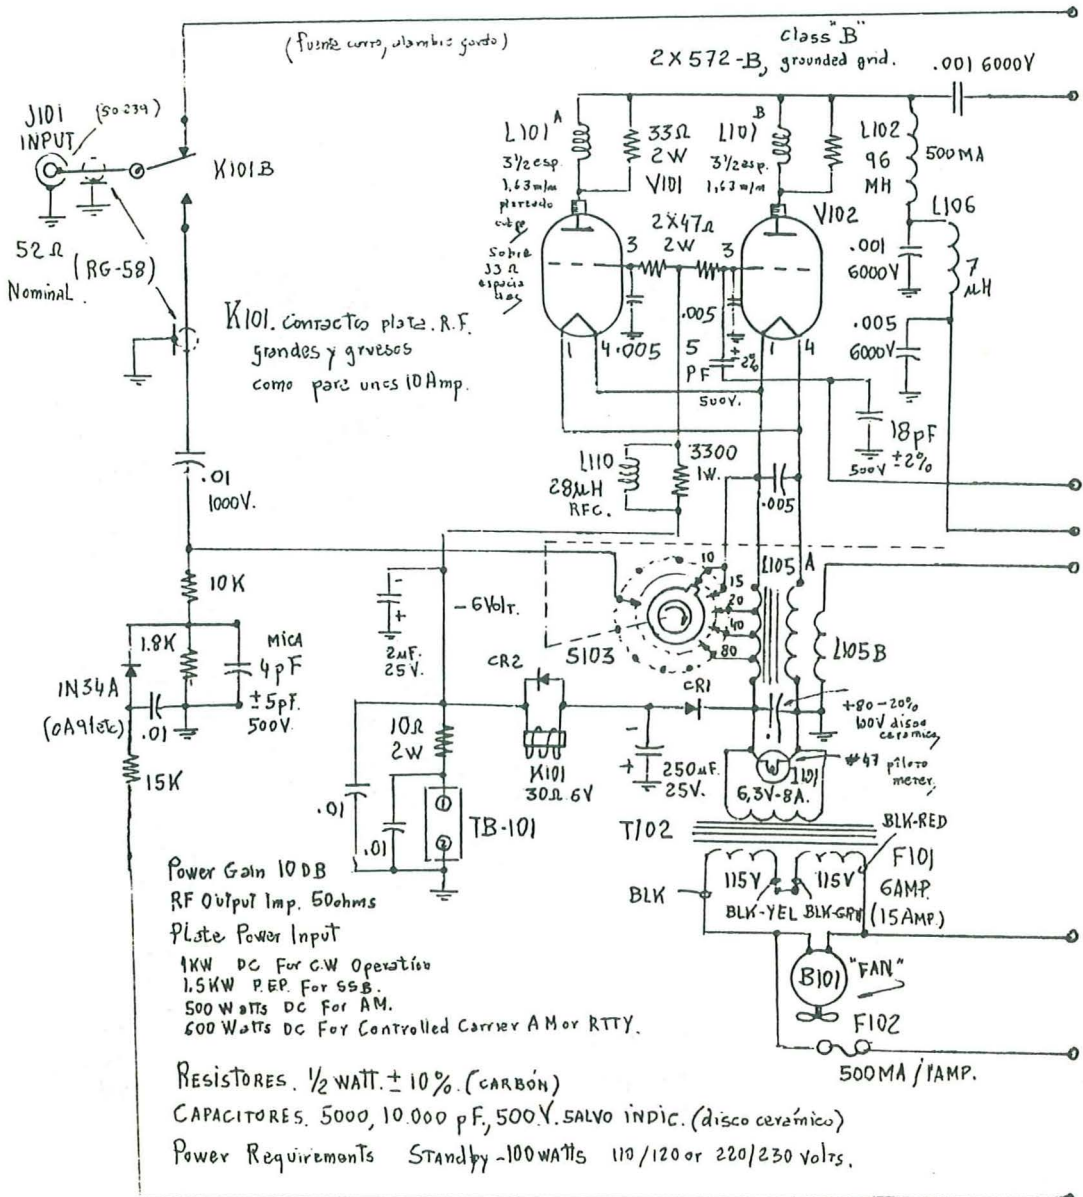 (fuente corro, alambre gordo)
class "B"
2X572-B, grounded grid.
.001 6000V
J101
INPUT
(SO-239)
K101B
52Ω
Nominal.
(RG-58)
K101. contactos plata. R.F.
grandes y gruesos
como para unos 10 Amp.
L101 A
3½ esp.
1,63 m/m
plateado
sobre
33Ω
espacia
das
33Ω
2W
V101
L101 B
3½ esp.
1,63 m/m
L102
96
MH
500MA
V102
2X47Ω
2W
3
3
L106
.001
6000V
7
μH
.005
6000V
1
4
.005
.005
5
PF
±2%
500V.
1
4
18pF
±2%
500V
.01
1000V.
L110
28μH
RFC.
3300
1W.
.005
10K
1.8K
MICA
4pF
±5pF.
500V.
1N34A
(OA91etc)
.01
15K
-
+
2μF.
25V.
-6Volt.
S103
10
15
20
40
80
L105 A
L105B
CR2
K101
30Ω.6V
10Ω
2W
CR1
-
+
250μF.
25V.
+80-20%
100V disco
ceramico
.1
#47 piloto
meter.
I101
6,3V-8A.
.01
.01
1
2
TB-101
T102
BLK-RED
F101
6AMP.
(15AMP.)
BLK
115V
115V
BLK-YEL
BLK-GRN
B101
"FAN"
F102
500MA/1AMP.
Power Gain 10DB
RF Output Imp. 50ohms
Plate Power Input
1KW DC For C.W Operation
1.5KW P.EP. For SSB.
500 Watts DC For AM.
600 Watts DC For Controlled Carrier AM or RTTY.
RESISTORES. ½ WATT. ± 10%. (CARBÓN)
CAPACITORES. 5000, 10.000 pF., 500.V. SALVO INDIC. (disco cerámico)
Power Requirements Standby -100WATTS 110/120 or 220/230 Volts.